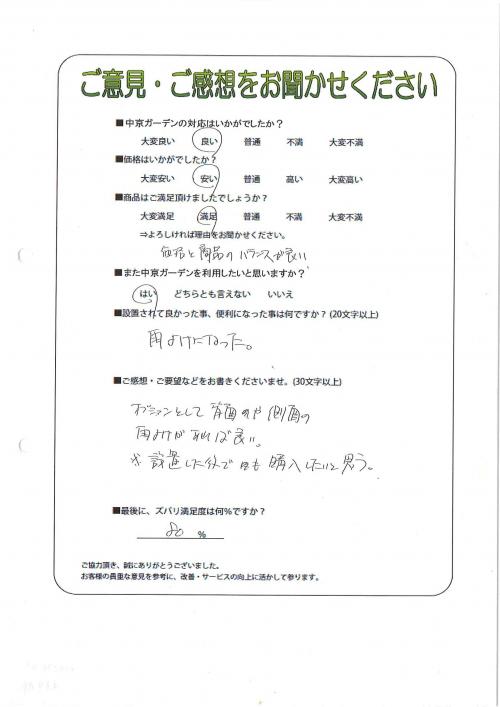 ご意見・ご感想をお聞かせください
■中京ガーデンの対応はいかがでしたか？
大変良い 良い 普通 不満 大変不満
■価格はいかがでしたか？
大変安い 安い 普通 高い 大変高い
■商品はご満足頂けましたでしょうか？
大変満足 満足 普通 不満 大変不満
⇒よろしければ理由をお聞かせください。
価格と商品のバランスが良い
■また中京ガーデンを利用したいと思いますか？
はい どちらとも言えない いいえ
■設置されて良かった事、便利になった事は何ですか？(20文字以上)
雨よけになった。
■ご感想・ご要望などをお書きくださいませ。(30文字以上)
オプションとして背面や側面の
雨よけがあれば良い。
※設置した後でも購入したいと思う。
■最後に、ズバリ満足度は何%ですか？
80 %
ご協力頂き、誠にありがとうございました。
お客様の貴重な意見を参考に、改善・サービスの向上に活かして参ります。